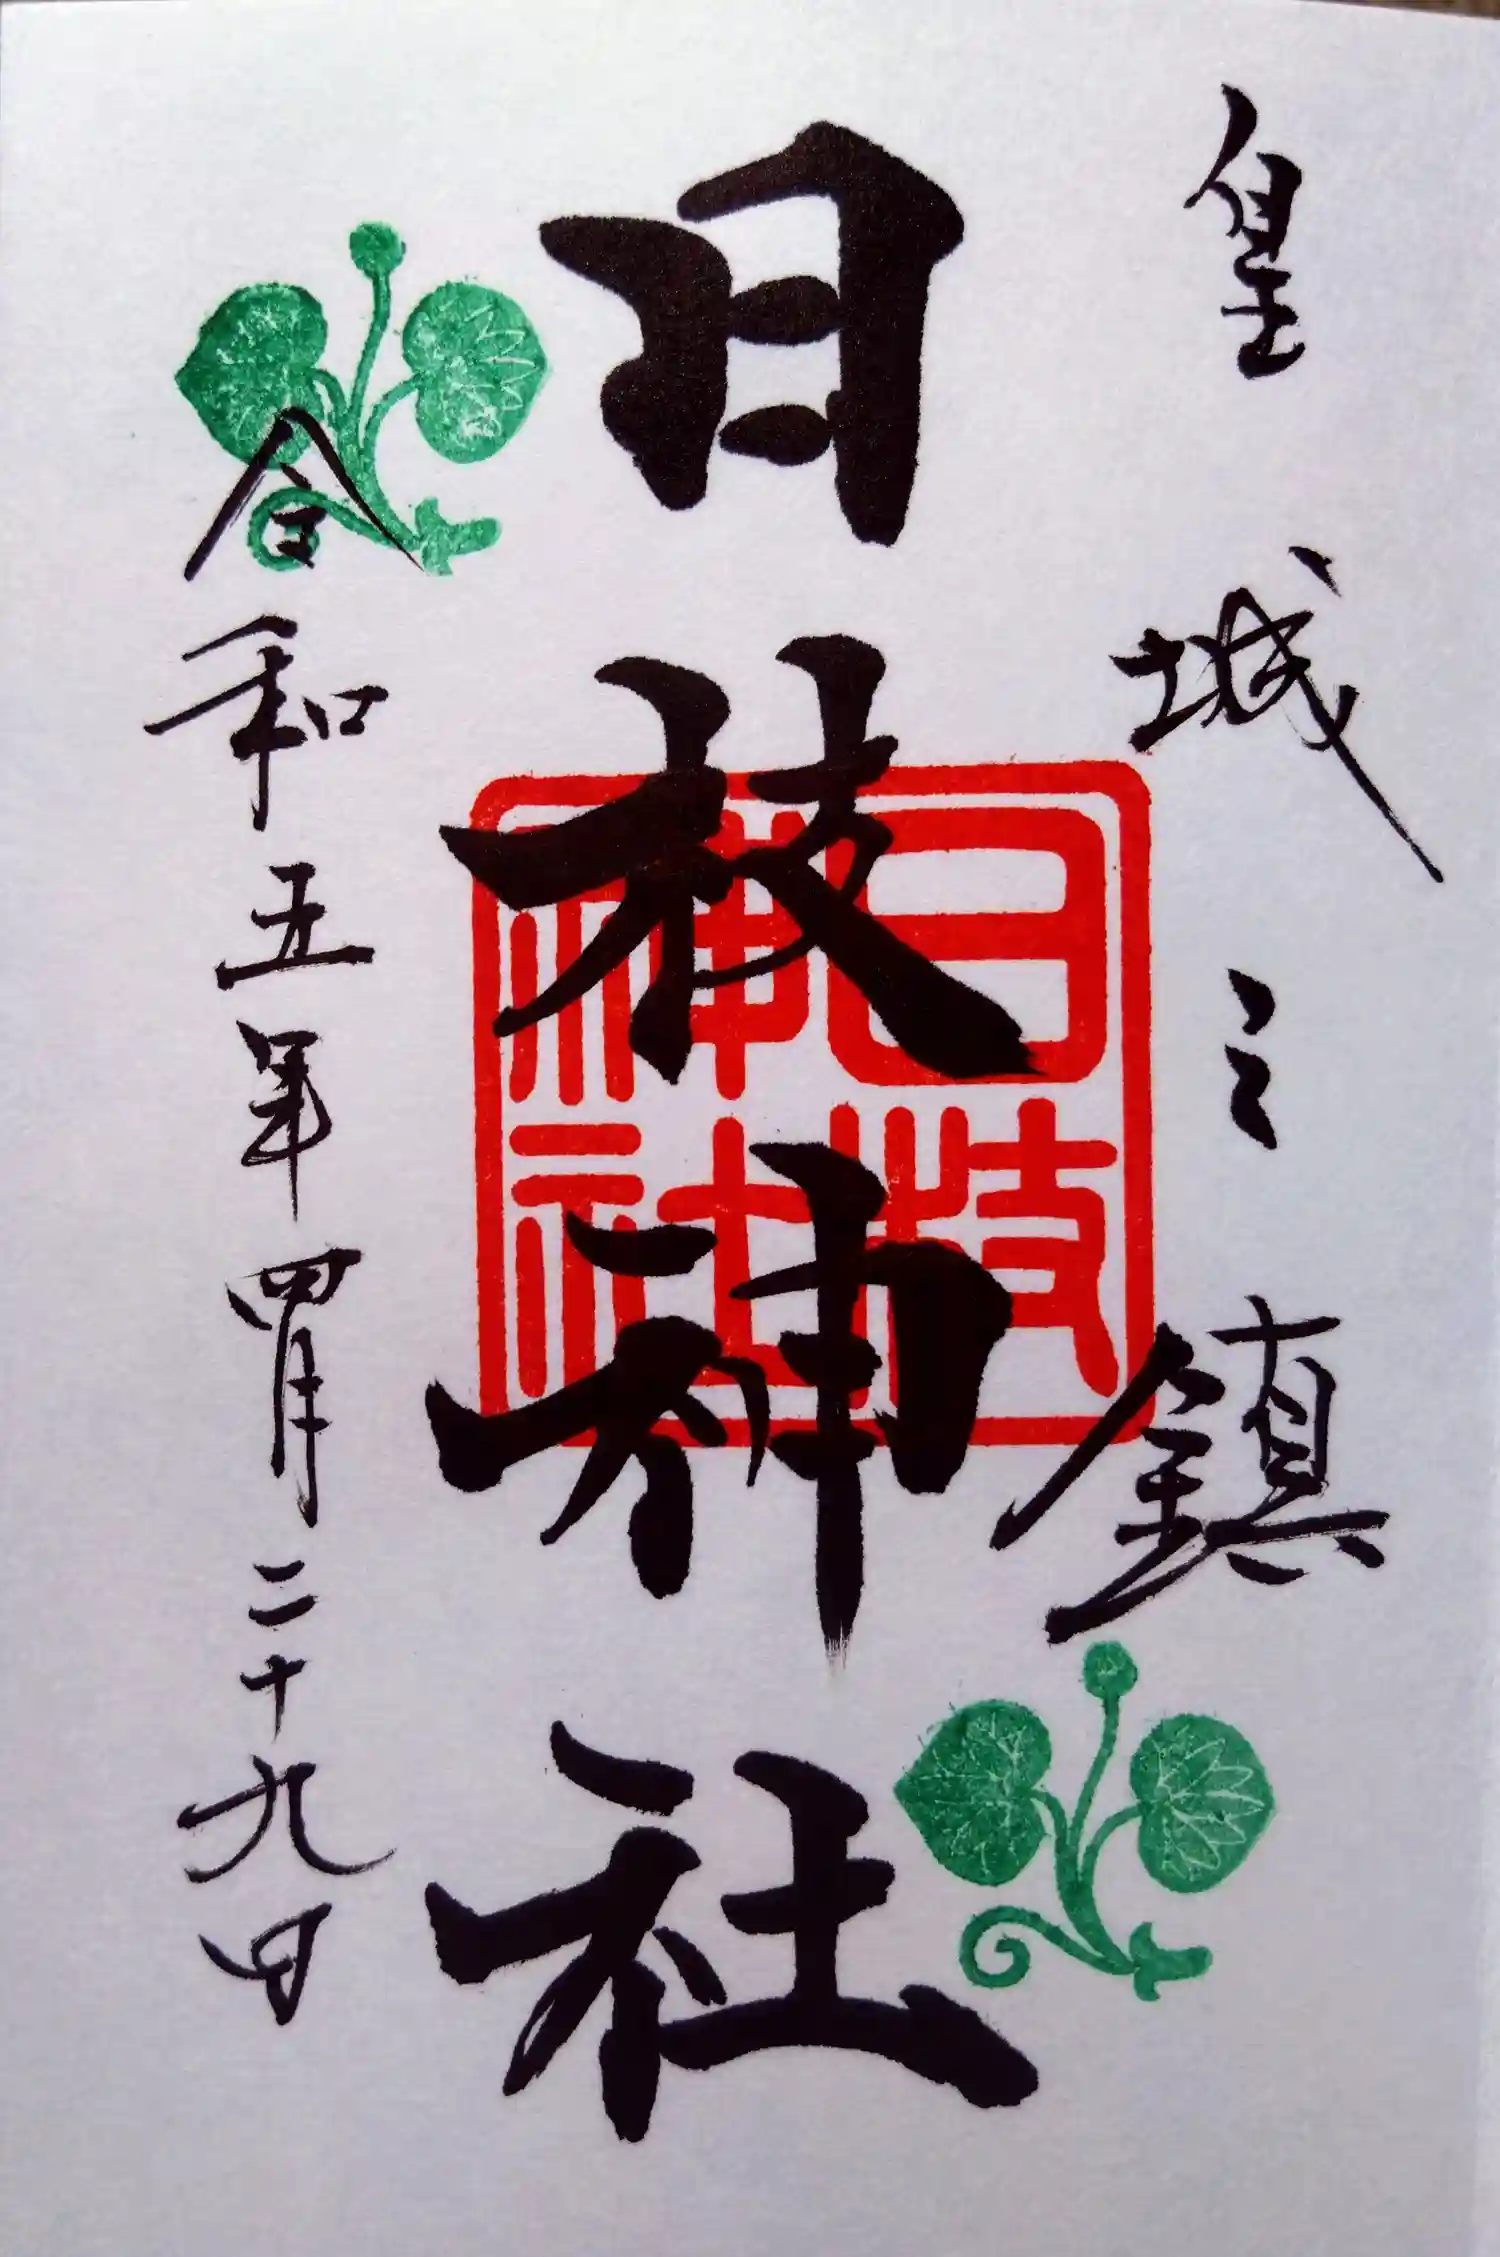 皇城之鎮
日枝神社
日枝神社
令和五年四月二十九日